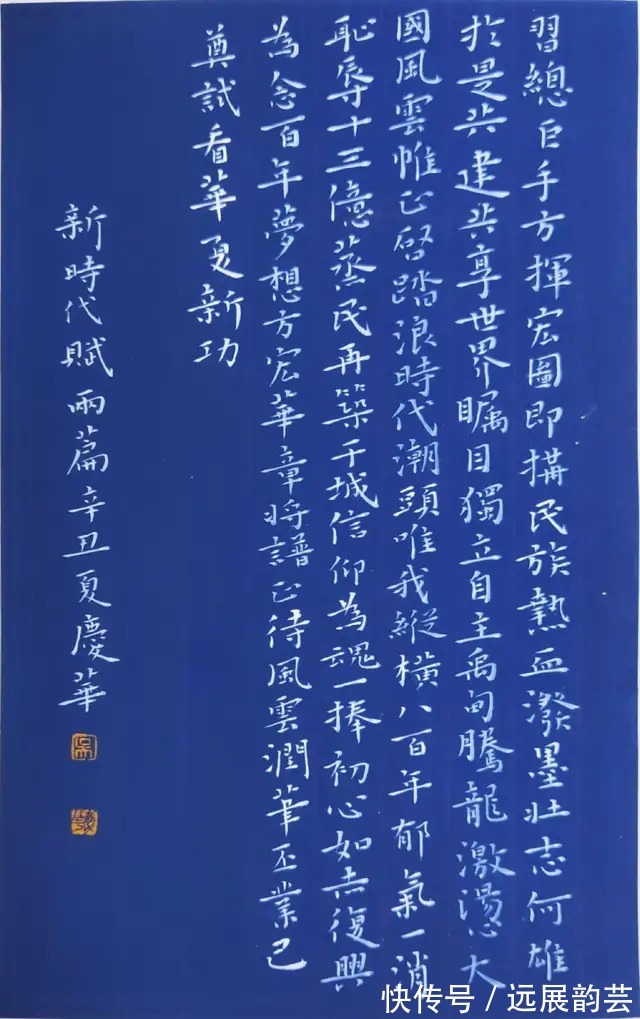 習總巨手方揮宏圖即搆民族熱血潑墨壯志何雄
於是共建共享世界矚目獨立自主禹甸騰龍激盪大
國風雲帷正啓踏浪時代潮頭唯我縱橫八百年郁氣一消
恥辱十三億蒸民再築干城信仰為魂一捧初心如赤復興
為念百年夢想方宏華章將譜正待風雲潤筆丕業已
奠試看華夏新功
新時代賦兩篇辛丑夏慶華
快传号 / 远展韵芸